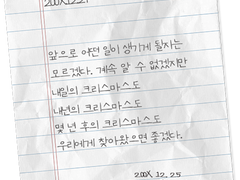 200X.12.24
앞으로 어떤 일이 생기게 될지는
모르겠다. 계속 알 수 없겠지만
내일의 크리스마스도
내년의 크리스마스도
몇 년 후의 크리스마스도
우리에게 찾아왔으면 좋겠다.
200X. 12. 25